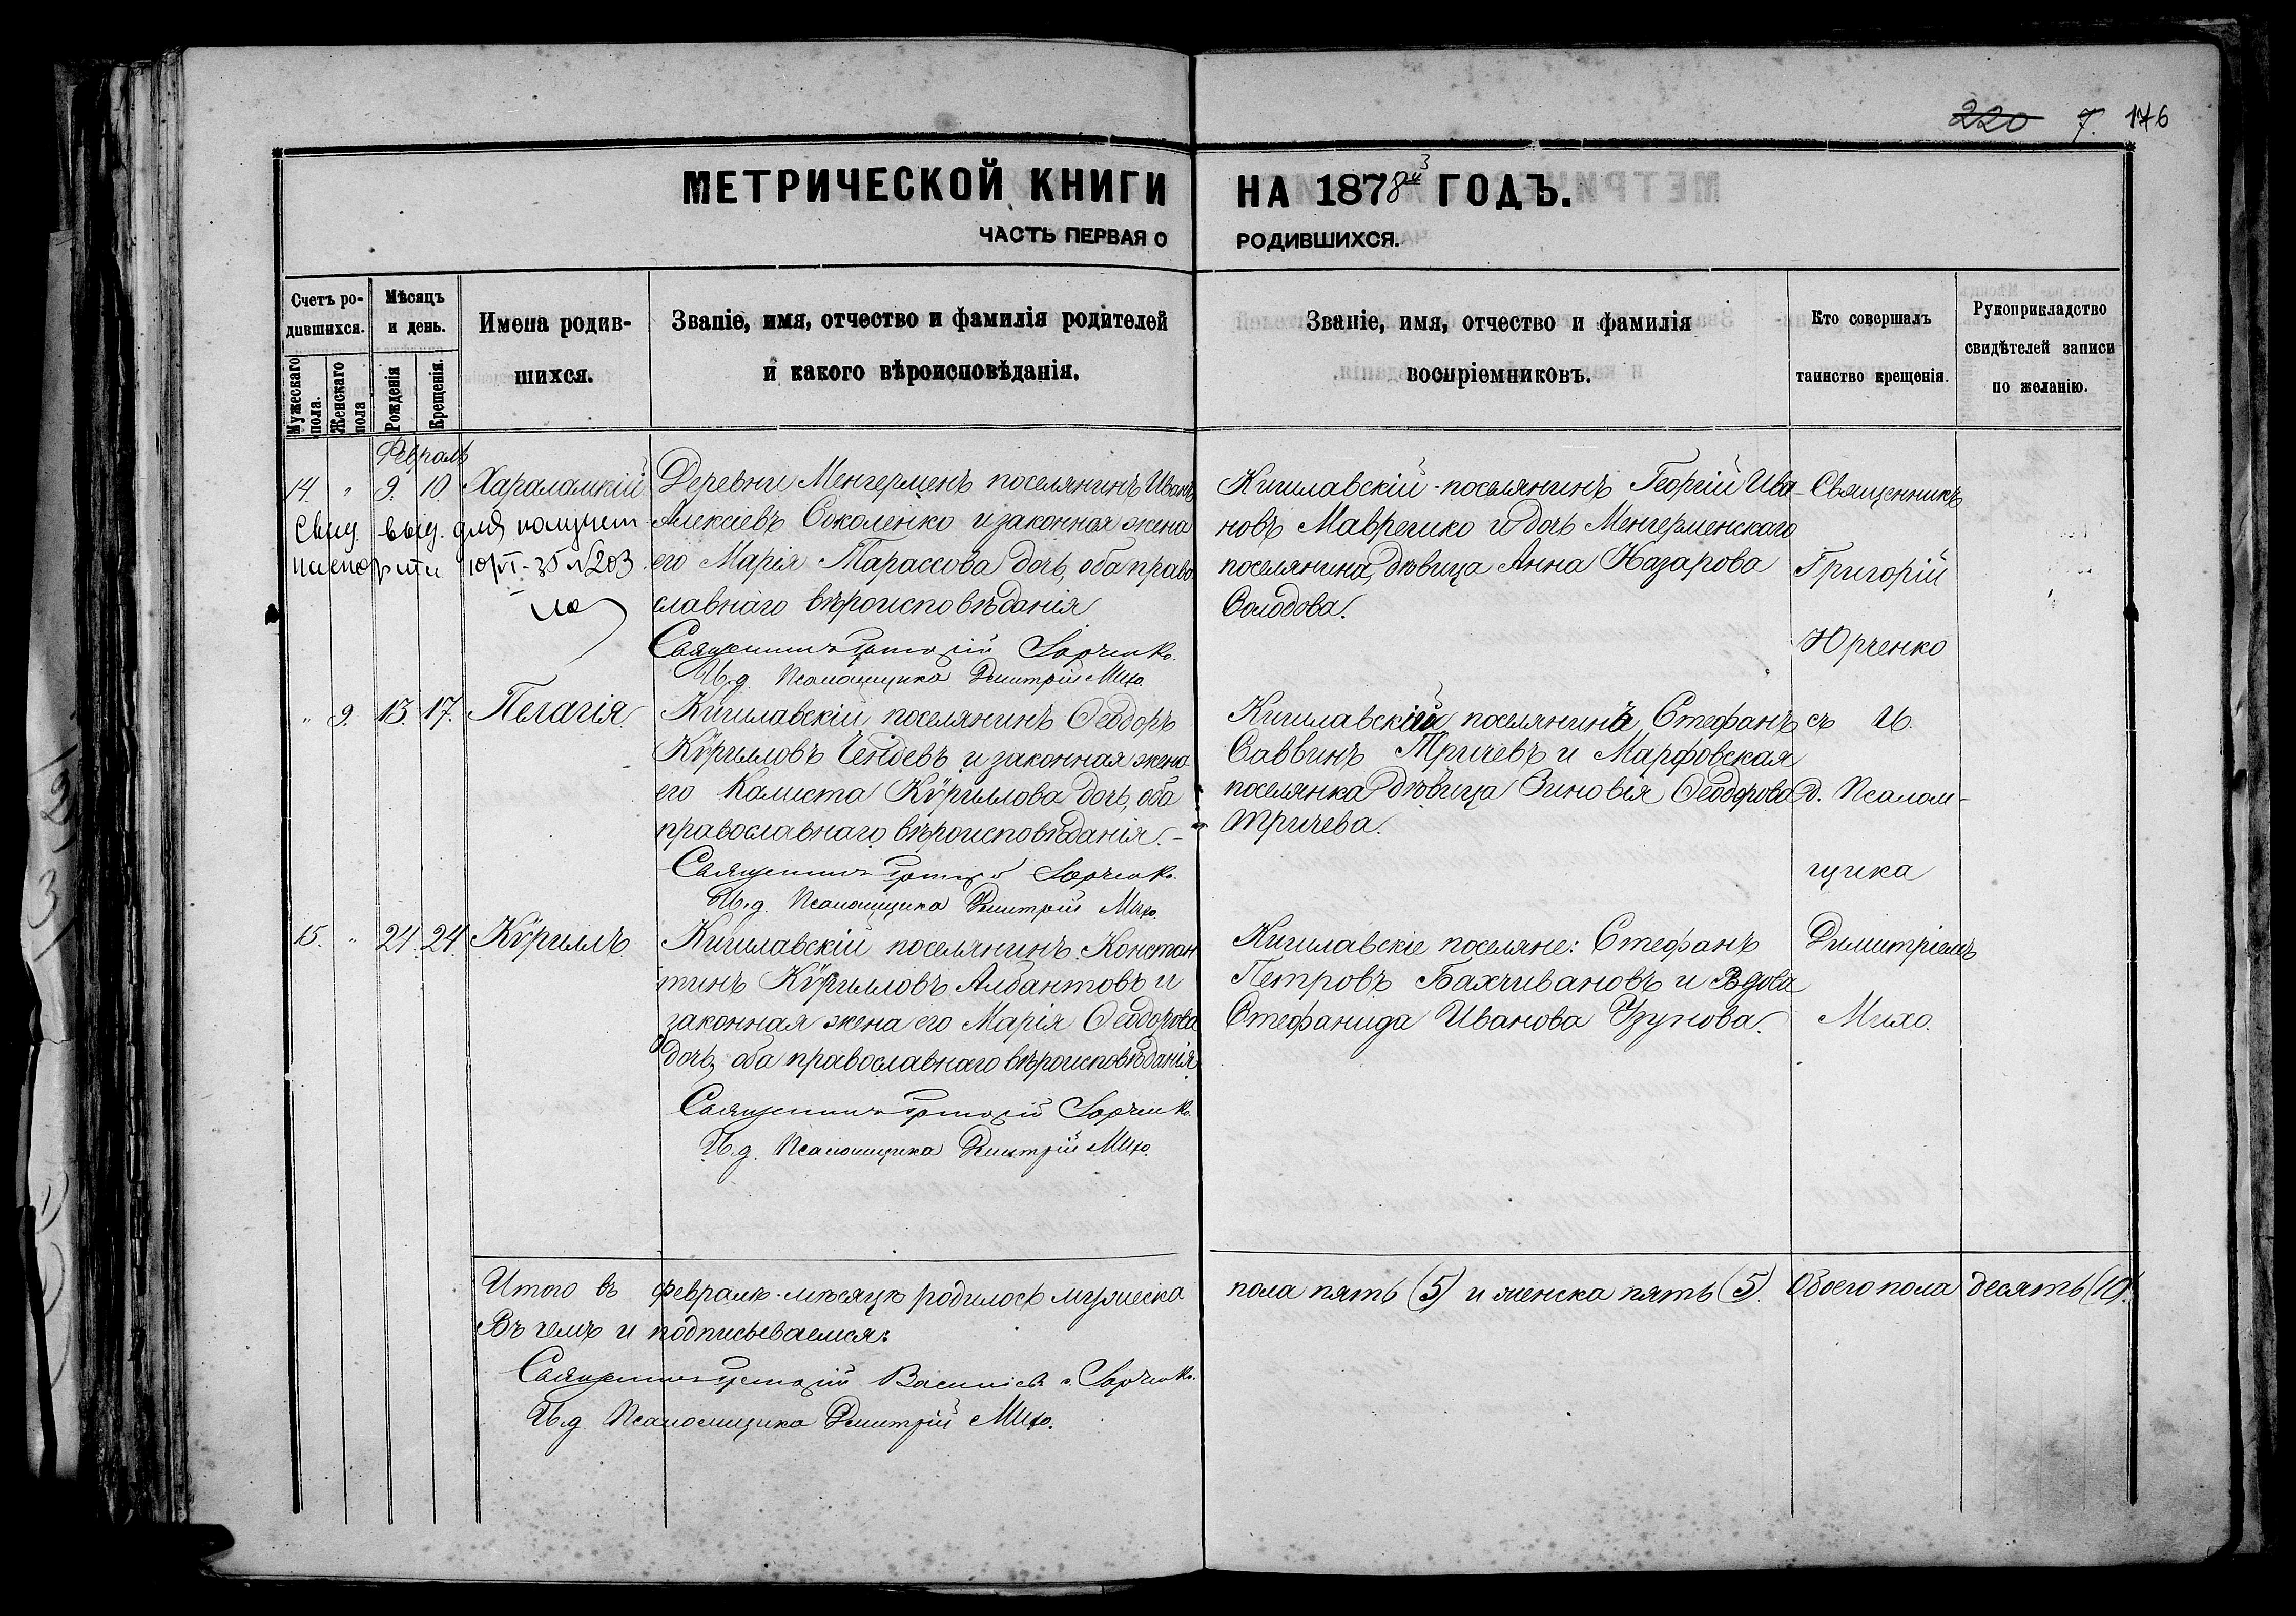 220 7. 176
МЕТРИЧЕСКОЙ КНИГИ НА 1878й ГОДЪ.
ЧАСТЬ ПЕРВАЯ О РОДИВШИХСЯ.
Счетъ родившихся.
Мужескаго пола.
Женскаго пола
Мѣсяцъ и день.
Рожденія
Крещенія.
Имена родив-
шихся.
Званіе, имя, отчество и фамилія родителей
и какого вѣроисповѣданія.
Званіе, имя, отчество и фамилія
воспріемниковъ.
Кто совершалъ
таинство крещенія.
Рукоприкладство
свидѣтелей записи
по желанію.
Февраль
14. " 9. 10. Харалампій
Свид. выд. для получен.
паспорта 10/VI-35 №203
Деревни Менгерменъ поселянинъ Иванъ
Алексіевъ Соколенко и законная жена
его Марія Тарассова дочь, оба право
славнаго вѣроисповѣданія
Священникъ Григорій Юрченко.
И.д. Псаломщика Димитрій Михо.
Кишлавскій поселянинъ Георгій Ива-
новъ Маврешко и дочь Менгерменскаго
поселянина, дѣвица Анна Назарова
Солодова.
Священникъ
Григорій
Юрченко
" 9. 13. 17. Пелагія.
Кишлавскій поселянинъ Ѳеодоръ
Кѵрилловъ Чендевъ и законная жена
его Калиста Кѵриллова дочь, оба
православнаго вѣроисповѣданія.-
Священникъ Григорій Юрченко.
И.д. Псаломщика Димитрій Михо.
Кишлавскій поселянинъ Стефанъ
Саввинъ Тричевъ и Марфовская
поселянка дѣвица Зиновія Ѳеодорова
Тричева.
съ И.
д. Псалом-
щика
15. " 24. 24. Кѵриллъ.
Кишлавскій поселянинъ Констан
тинъ Кѵрилловъ Албантовъ и
законная жена его Марія Ѳеодорова
дочь, оба православнаго вѣроисповѣданія
Священникъ Григорій Юрченко.
И.д. Псаломщика Димитрій Михо.
Кишлавскіе поселяне: Стефанъ
Петровъ Бахчивановъ и Вдова
Стефанида Иванова Узунова.
Димитріемъ
Михо.
Итого въ февралѣ мѣсяцѣ родилось мужеска пола пять (5) и женска пять (5). Обоего пола десять (10).
Въ чемъ и подписываемся:
Священникъ Григорій Васильевъ Юрченко.
И.д. Псаломщика Димитрій Михо.